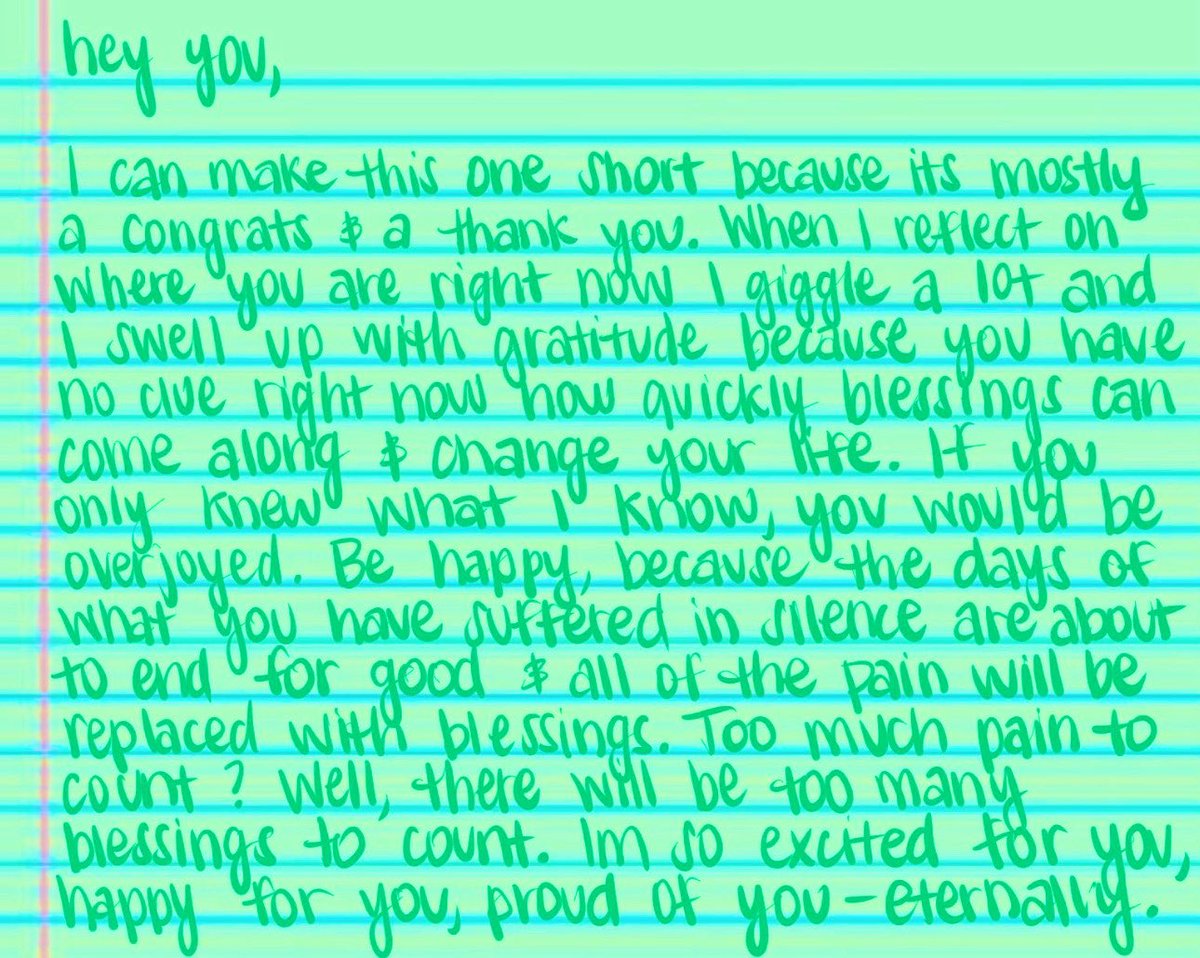 hey you,
I can make this one short because its mostly
a congrats & a thank you. When I reflect on
where you are right now I giggle a lot and
I swell up with gratitude because you have
no clue right now how quickly blessings can
come along & change your life. If you
only knew what I know, you would be
overjoyed. Be happy, because the days of
what you have suffered in silence are about
to end for good & all of the pain will be
replaced with blessings. Too much pain to
count? Well, there will be too many
blessings to count. Im so excited for you,
happy for you, proud of you - eternally.